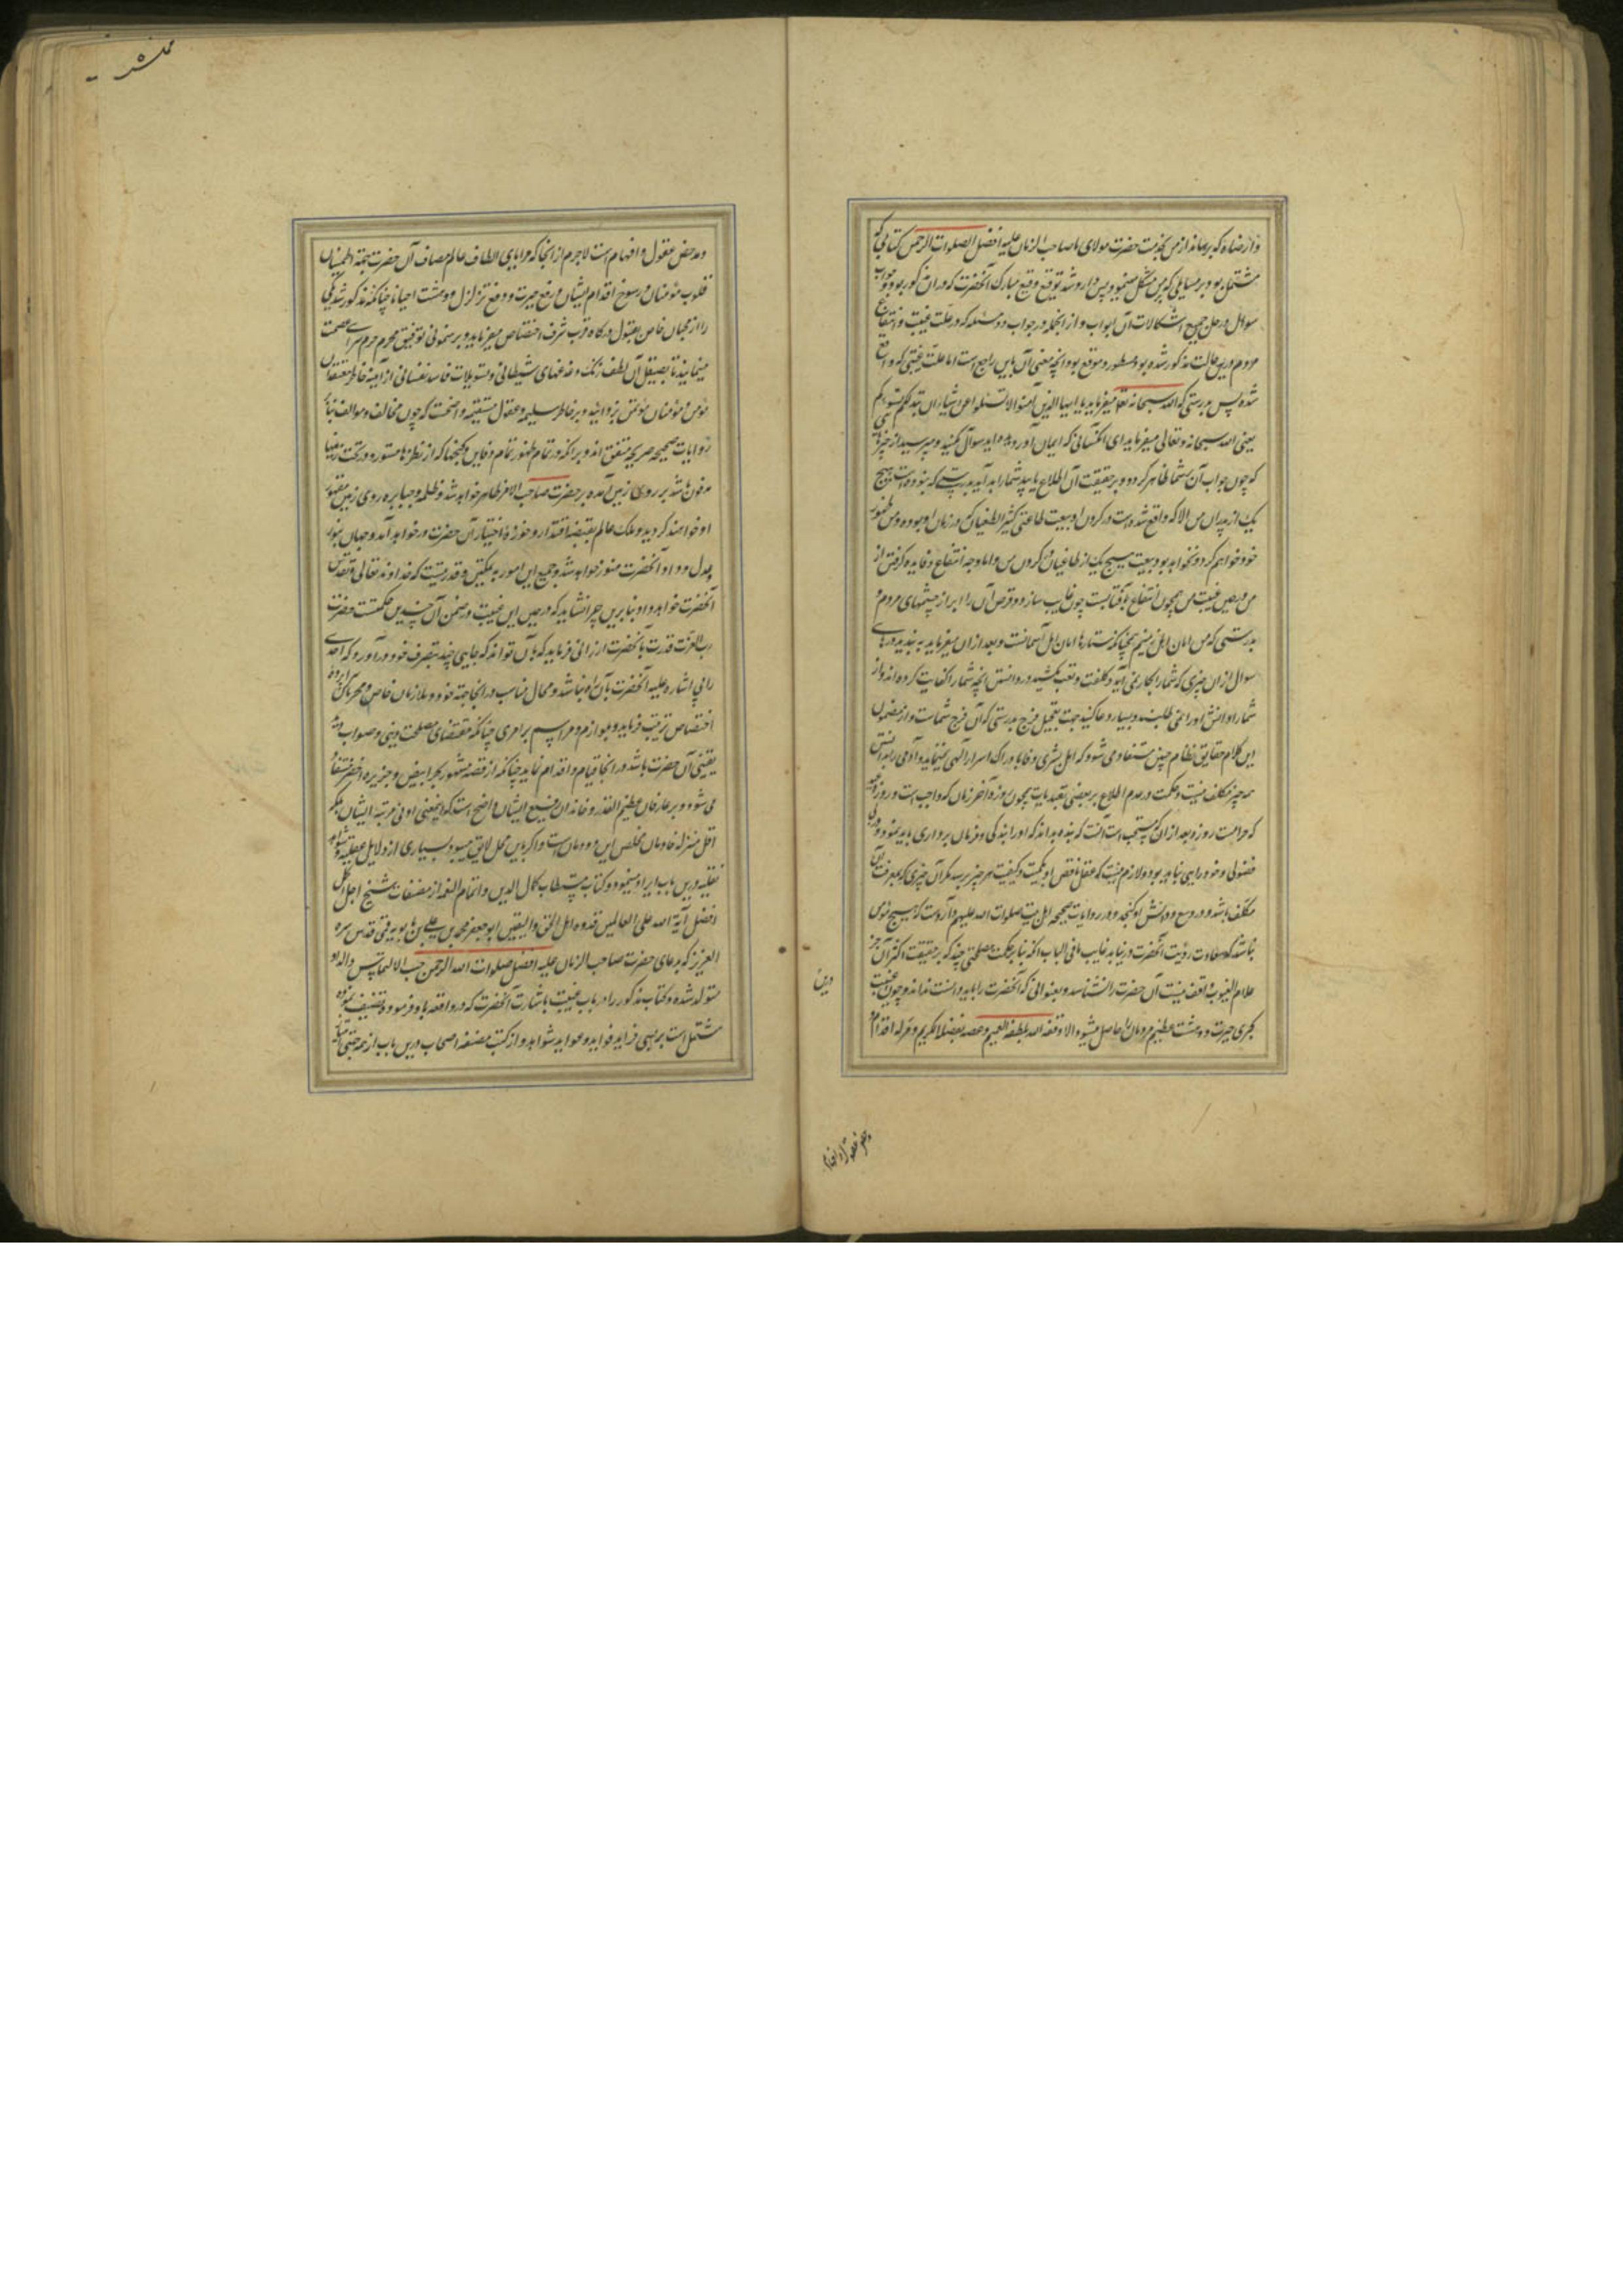 مشتمل بود بر مسایلی که بر من مشکل مینمود پس وارد شد توقیع وقیع مبارک آنحضرت که در آن مذکور بود جواب
سوال و حل جمیع اشکالات آن ابواب و از آنجمله در جواب دو مسئله که در علت غیبت و انتفاع
مردم درین حالت مذکور شده بود مسطور و موقع بود آنچه معنی آن باین راجع است اما علت غیبتی که واقع
شده پس بدرستی که الله سبحانه تعالی میفرماید یا ایها الذین آمنوا لا تسئلوا عن اشیاء ان تبد لکم تسؤکم
یعنی الله سبحانه و تعالی میفرماید ای آنکسانی که ایمان آورده اید سوال مکنید و مپرسید از چیزهایی
که چون جواب آن بشما ظاهر گردد و بر حقیقت آن اطلاع یابید شمارا بد آید بدرستی که نبوده است هیچ
یک از پدران من الا که واقع شده است در گردن او بیعت طاغی کثیر الطغیان که در زمان او بوده و من ظهور
خود خواهم کرد و نخواهد بود بیعت هیچ یک از طاغیان در گردن من و اما وجه انتفاع و فایده گرفتن از
من در حین غیبت من همچون انتفاع بآفتابست چون غایب سازد قرص آن را ابر از چشمهای مردم و
بدرستی که من امان اهل زمینم همچنانکه ستارها امان اهل آسمانست و بعد از آن میفرماید به بندید درهای
سوال از آن چیزی که شمارا بکار نمی آید و کلفت و تعب مکشید در دانستن آنچه شمارا کفایت کرده اند و از
شما دانش او را نمی طلبند و بسیار دعا کنید جهت تعجیل فرج بدرستی که آن فرج شماست و از مضمون
این کلام حقایق نظام چنین مستفاد می شود که اهل بشری وفا بادراک اسرار الهی نمینماید و آدمی را بدانستن
همه چیز مکلف نیست و حکمت در عدم اطلاع بر بعضی تعبدیات همچون روزه آخر رمضان که واجب است و روز عید
که حرامست روزه و بعد از آن که مستحب است آنست که بنده بداند که او را بندگی و فرمان برداری باید نمود و در آن
فضولی و خود رایی نباید بود و لازم نیست که عقل ناقص او بکمیت و کیفیت هر چیز برسد مگر آن چیزی که بمعرفت آن
مکلف باشد و در وسع و دانش او گنجد و در روایات صحیحه اهل بیت صلوات الله علیهم وارد است که هیچ مؤمن
نباشد که سعادت رؤیت آنحضرت در نیابد غایب ما فی الباب آنکه بنا بر حکمت و مصلحتی چند که بر حقیقت اکثر آن جز
علام الغیوب واقف نیست آن حضرت را نشناسد و بعنوانی که آنحضرت را باید دانست نداند و چون غیبت
کبری حیرت و دهشت عظیم مردمان را حاصل میشود الا و فقه الله بلطفه العمیم و عصمه بفضله الکریم و مزله اقدام
و مدحض عقول و افهام است لاجرم از آنجا که مزایای الطاف عالم مصاف آن حضرت جهة اطمینان
قلوب مؤمنان و رسوخ اقدام ایشان و رفع حیرت و دفع تزلزل و دهشت احیانا چنانکه مذکور شد یکی
را از محبان خاص بقبول درگاه قرب شرف اختصاص میفرماید و بر رهنمونی توفیق محرم حرم سرای عصمت
مینمایند تا بصیقل آن لطف زنگ دغدغهای شیطانی و تسویلات فاسد نفسانی از آینه خاطر معتقدان
مؤمن و مؤمنان مؤتمن بزدایند و بر خاطر سلیمه و عقول مستقیمه واضحست که چون مخالف و موالف بنابر
روایات صحیحه صریحه متفق اند و بر آنکه در تمام ظهور تمام دفاین و گنجها که از نظرها مستور و در تحت زمینها
مدفون باشد بر روی زمین آمده بر حضرت صاحب الامر ظاهر خواهد شد و ظلمه و جبابره روی زمین مقهور
او خواهند گردید و ملک عالم بقبضه اقتدار و حوزه اختیار آن حضرت در خواهد آمد و جهان بنور
عدل و داد آنحضرت منور خواهد شد و جمیع این امور به تمکین و قدرتیست که خداوند تعالی و تقدس
آنحضرت خواهد داد بنابرین چرا نشاید که در حین این غیبت در ضمن آن چندین حکمتست حضرت
رب العزت قدرت بآنحضرت ارزانی فرماید که بآن تواند که جایی چند بتصرف خود در آورد که احدی
را بی اشاره علیه آنحضرت بآن راه نباشد و محال مناسب در آنجا جهة خود و ملازمان خاص و محرمان
اختصاص ترتیب فرماید و بلوازم و مراسم بر امری چنانکه مقتضای مصلحت دینی و صواب
یقینی آن حضرت باشد در آنجا قیام و اقدام نماید چنانکه از قصه مشهور بحر ابیض و جزیره اخضر مستفاد
می شود و بر عارفان عظیم القدر و خاندان رفیع ایشان واضح است که اینمعنی ادنی مرتبه ایشان بلکه
اقل منزله خادمان مخلص این دودمان است و اگر باین محل لایق میبود بسیاری از دلایل عقلیه و شواهد
نقلیه درین باب ایراد مینمود و کتاب مستطاب کمال الدین و اتمام النعمه از مصنفات شیخ اجل اکمل
افضل آیة الله علی العالمین قدوه اهل الحق و الیقین ابو جعفر محمد بن علی بن بابویه قمی قدس سره
العزیز که بدعای حضرت صاحب الزمان علیه افضل صلوات الله الرحمن حسب الالتماس والد او
متولد شده و کتاب مذکور را در باب غیبت باشارت آنحضرت که در واقعه باو فرموده تصنیف نموده
مشتمل است بر بسی فراید فواید و عواید شواهد و از کتب مصنفه اصحاب درین باب از همه